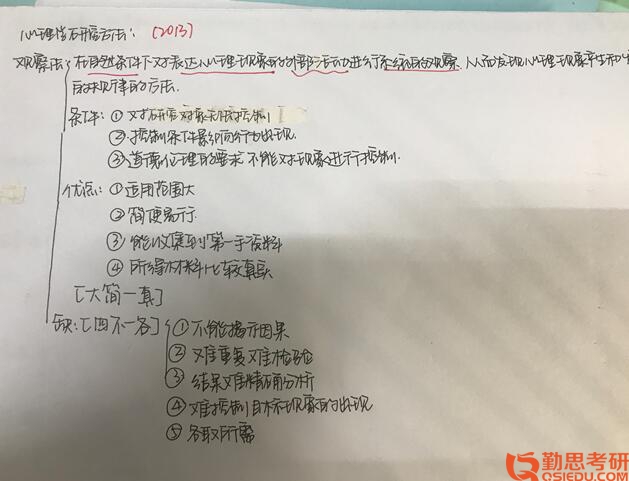 心理学研究方法: (2013)
观察法 在自然条件下对表达心理现象的外部活动进行系统的观察, 从而发现心理现象产生和
的规律的方法.
条件: ① 对研究对象无法控制
② 控制条件影响行为出现
③ 道德伦理的要求不能对现象进行控制.
优点: ① 适用范围大
② 简便易行
③ 能收集到第一手资料
④ 所得材料比较真实
[大简一真]
缺:[四不一各] ① 不能揭示因果
② 难重复难检验
③ 结果难精确分析
④ 难控制目标现象的出现
⑤ 各取所需
勤思考研
QSIEDU.COM